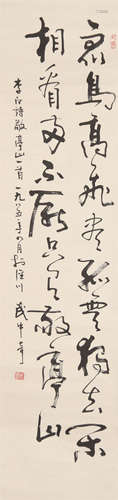 眾鳥高飛盡孤雲獨去閑
相看兩不厭只有敬亭山
李白詩敬亭山一首一九八五年月於涇川
武中奇